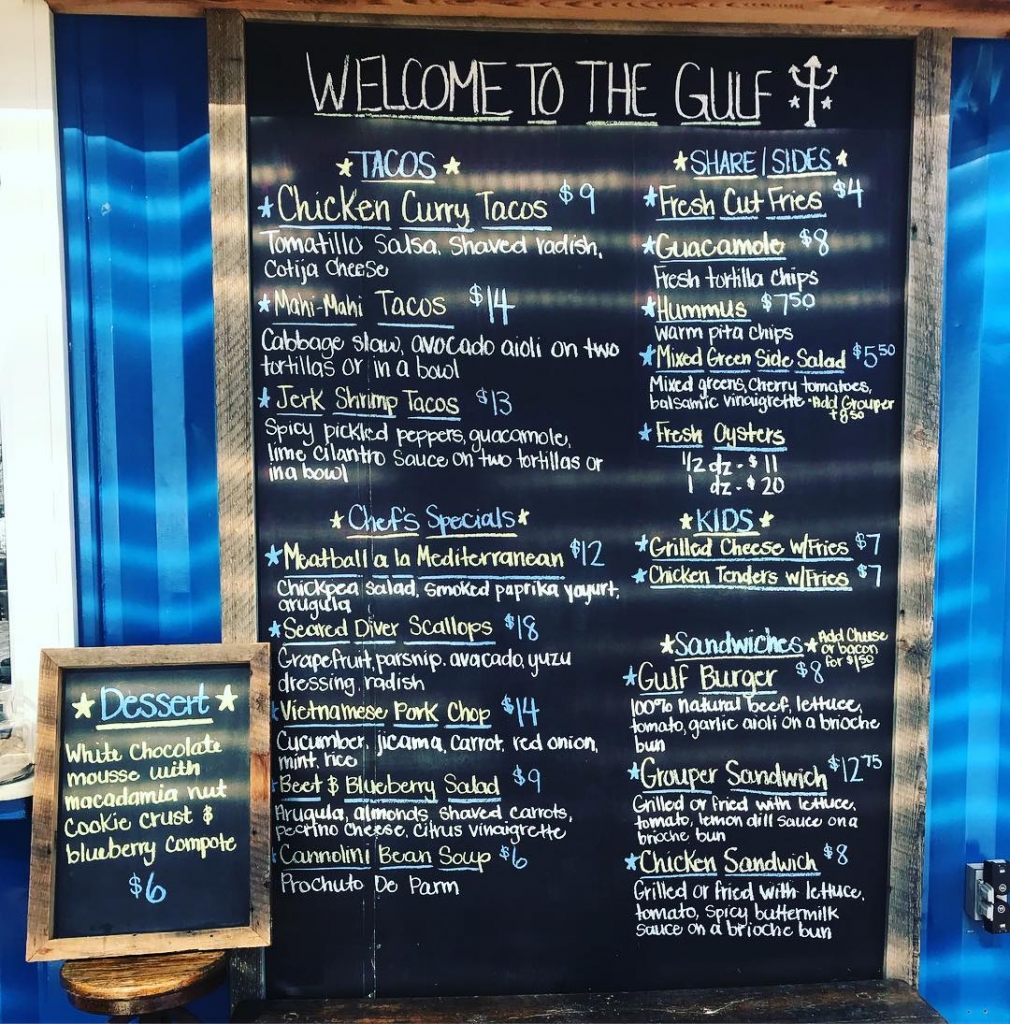 WELCOME TO THE GULF
TACOS
Chicken Curry Tacos $9
Tomatillo Salsa, Shaved radish,
Cotija Cheese
Mahi-Mahi Tacos $14
Cabbage slaw, avocado aioli on two
tortillas or in a bowl
Jerk Shrimp Tacos $13
Spicy pickled peppers, guacamole,
lime cilantro Sauce on two tortillas or
in a bowl
Chef's Specials
Meatball a la Mediterranean $12
Chickpea salad, smoked paprika yogurt,
arugula
Seared Diver Scallops $18
Grapefruit, parsnip, avocado, yuzu
dressing, radish
Vietnamese Pork Chop $14
Cucumber, jicama, carrot, red onion,
mint, rice
Beet & Blueberry Salad $9
Arugula, almonds, shaved carrots,
pecrino cheese, Citrus vinaigrette
Cannolini Bean Soup $6
Prochuto De Parm
SHARE/SIDES
Fresh Cut Fries $4
Guacamole $8
Fresh tortilla chips
Hummus $7.50
Warm pita chips
Mixed Green Side Salad $5.50
Mixed greens, Cherry tomatoes,
balsamic vinaigrette *Add Grouper
+8.50
Fresh Oysters
1/2 dz - $11
1 dz - $20
KIDS
Grilled Cheese w/Fries $7
Chicken Tenders w/Fries $7
Sandwiches Add Cheese
or bacon
for $1.50
Gulf Burger $8
100% natural beef, lettuce,
tomato, garlic aioli on a brioche
bun
Grouper Sandwich $12.75
Grilled or fried with lettuce,
tomato, lemon dill sauce on a
brioche bun
Chicken Sandwich $8
Grilled or fried with lettuce,
tomato, spicy buttermilk
sauce on a brioche bun
Dessert
White Chocolate
mousse with
macadamia nut
Cookie crust &
blueberry compote
$6